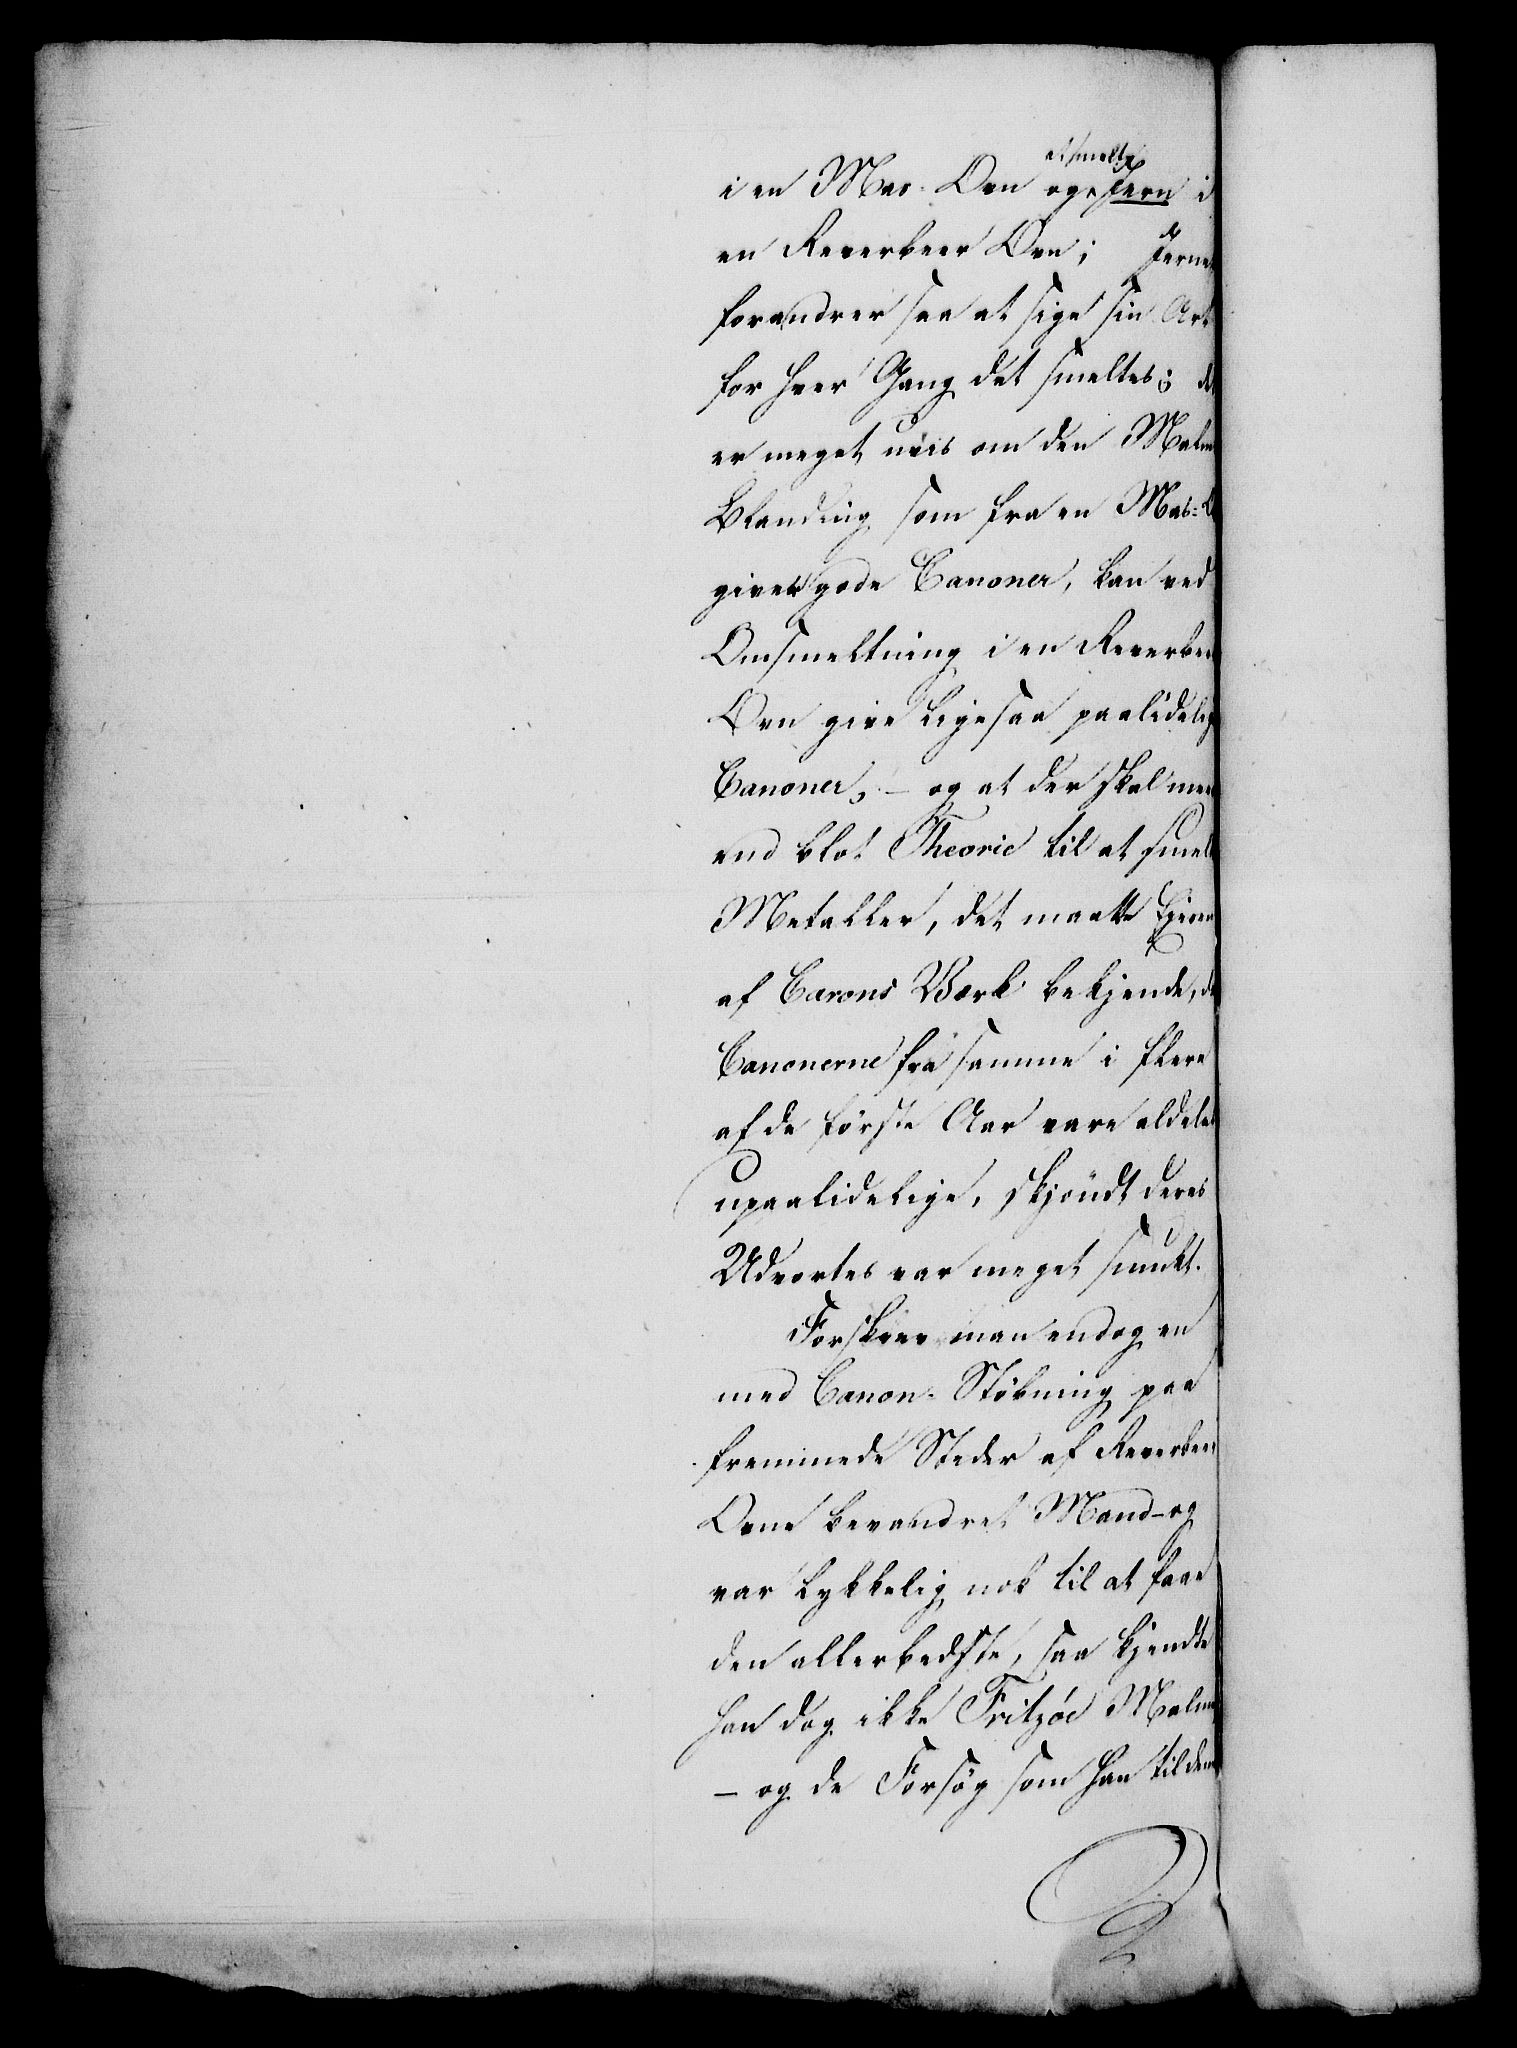 at smelte
i en Mas-Ovn og Jern i
en Reverbeer Ovn; Jernet
forandrer saa at sige sin Art
for hver Gang det smeltes; det
er meget uvis om den Malm
Blanding som fra en Mas-
giver gode Canoner, kan ved
Omsmeltning i en Reverbeer
Ovn give ligesaa paalidelige
Canoner, – og at der skal mere
end blot Theorie til at smelte
Metaller, det maatte Ejeren
af Carons Værk bekjende, da
Canonerne fra samme i flere
af de første Aar vare aldeles
upaalidelige, skjøndt deres
Udvortes var meget smukt.
Forskrev man endog en
med Canon-Støbning paa
fremmede Steder af Reverbeer
Ovne bevandret Mand – og
var lykkelig nok til at faae
den allerbedste, saa kjendte
han dog ikke Fritzøe Malm
– og de Forsøg som han til den